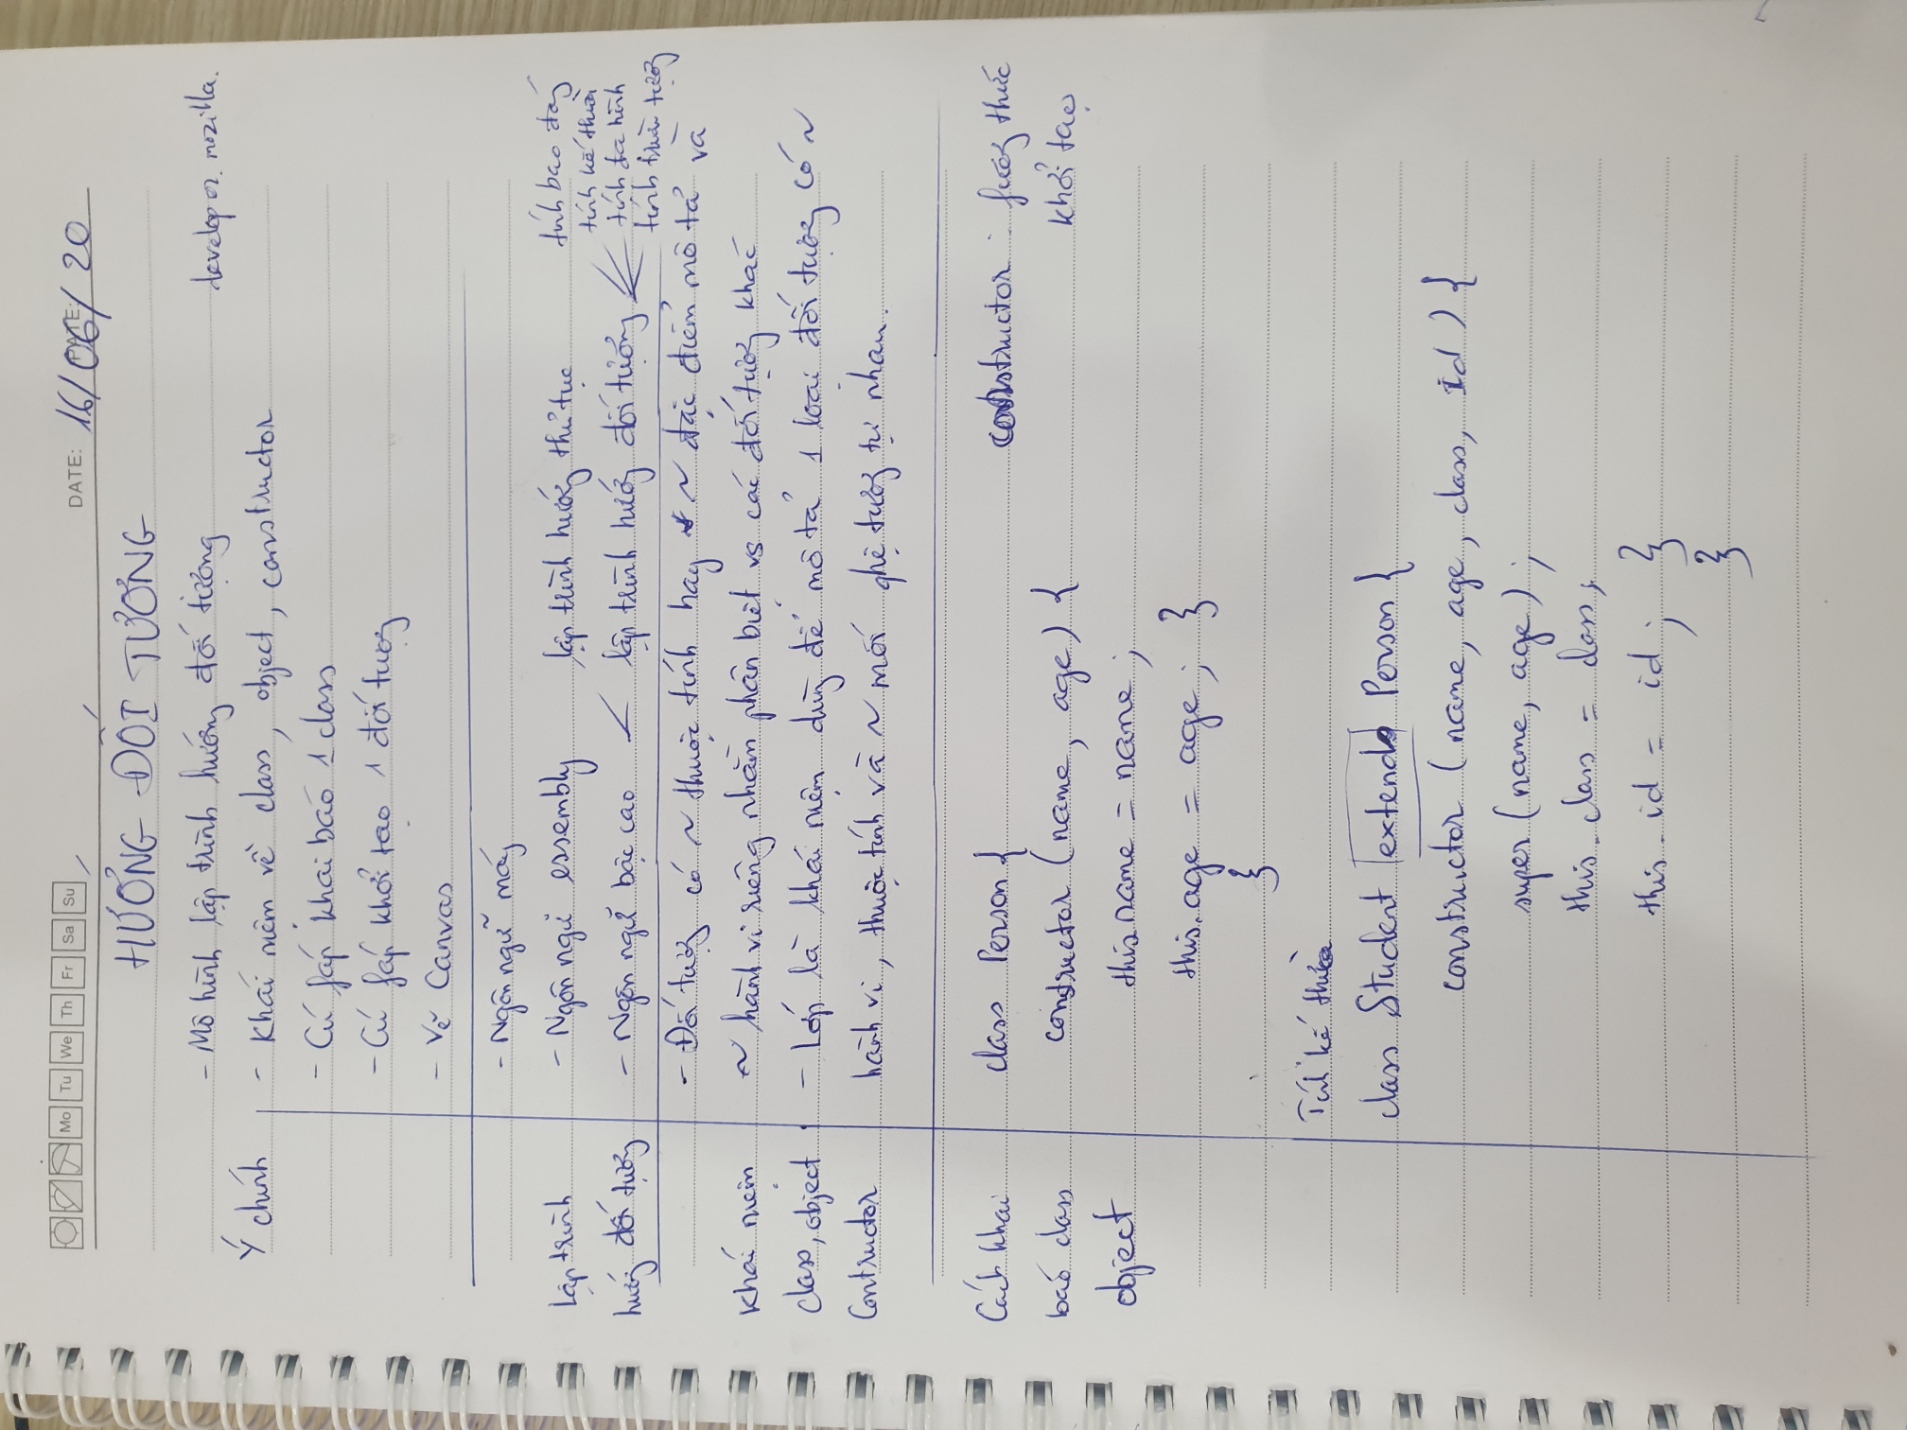 Mo Tu We Th Fr Sa Su
DATE: 16/06/20
HƯỚNG ĐỐI TƯỢNG
- Mô hình lập trình hướng đối tượng
developer.mozilla.
Ý chính
- Khái niệm về class, object, constructor
- Cú fáp khai báo 1 class
- Cú fáp khởi tạo 1 đối tượng
- Vẽ Canvas
- Ngôn ngữ máy
Lập trình
hướng đối tượng
- Ngôn ngữ essembly
lập trình hướng thủ tục
- Ngôn ngữ bậc cao < lập trình hướng đối tượng
tính bao đóng
tính kế thừa
tính đa hình
tính trừu tượng
Khái niệm
class, object
Contructor
- Đối tượng có ~ thuộc tính hay ~ đặc điểm mô tả và
~ hành vi riêng nhằm phân biệt vs các đối tượng khác
- Lớp là khái niệm dùng để mô tả 1 loại đối tượng có ~
hành vi, thuộc tính và ~ mối qhệ tương tự nhau.
Cách khai
báo class
object
class Person {
constructor (name, age) {
this name = name;
this.age = age; }
}
constructor : fương thức
khởi tạo
Tính kế thừa
class Student extends Person {
constructor (name, age, class, id) {
super (name, age);
this.class = class;
this.id = id; }
}